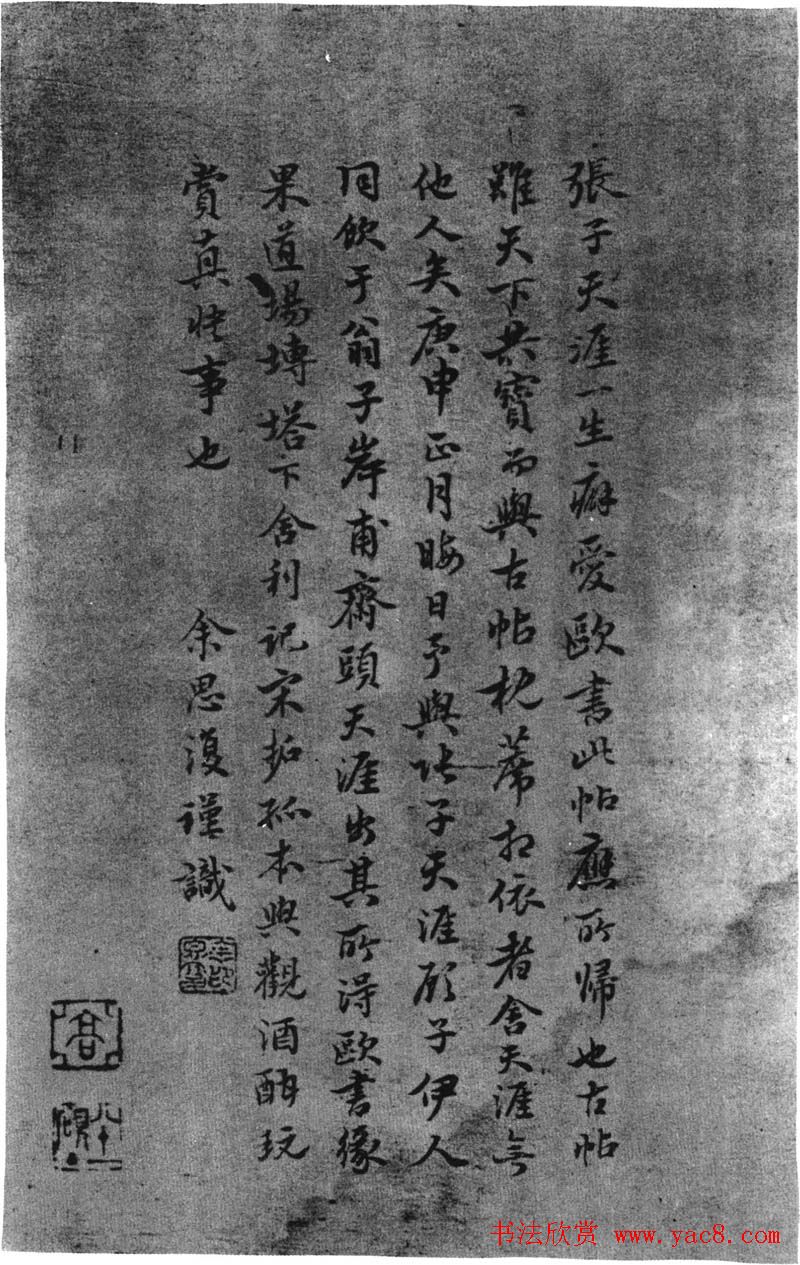 張子天涯一生癖愛歐書此帖應所歸也古帖
雖天下共寶而與古帖枕蓆相依者舍天涯無
他人矣庚申正月晦日予與張子天涯顧子伊人
同飲于翁子岸甫齋頭天涯出其所得歐書緣
果道場塼塔下舍利記宋拓孤本與觀酒酣玩
賞真快事也
余思復謹識
高
書法欣赏 www.yac8.com